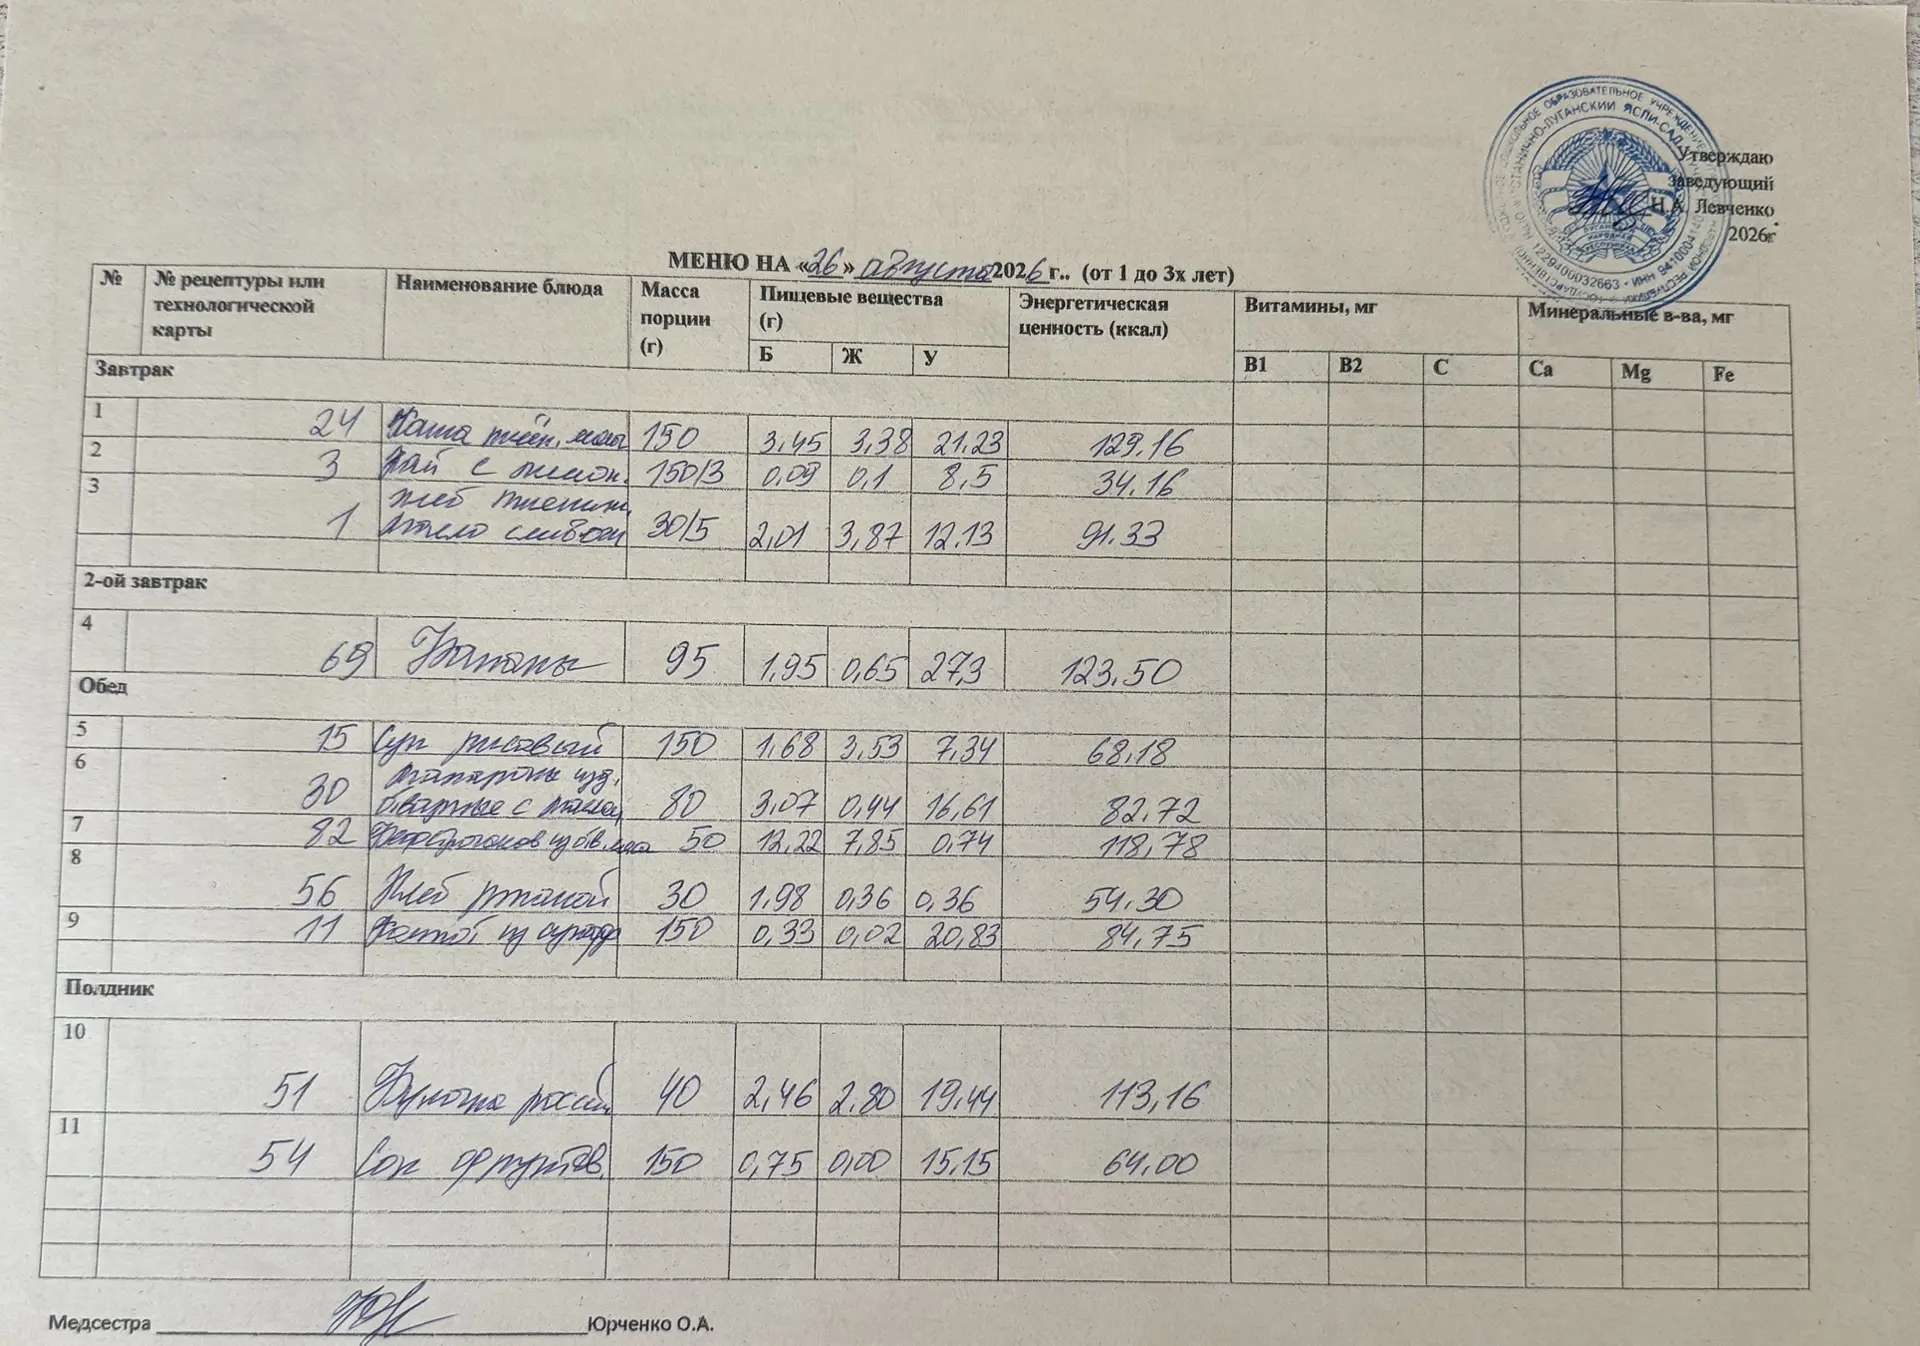 Утверждаю
заведующий
Н.А. Левченко
2026г
МЕНЮ НА «26» августа 2026 г.. (от 1 до 3х лет)
№ № рецептуры или технологической карты Наименование блюда Масса порции (г) Пищевые вещества (г) Энергетическая ценность (ккал) Витамины, мг Минеральные в-ва, мг
Б Ж У В1 В2 С Ca Mg Fe
Завтрак
1 24 Каша пшен. моло 150 3,45 3,38 21.23 129.16
2 3 Чай с лимон. 150/3 0,09 0,1 8,5 34.16
3 1 Хлеб пшенич, масло сливоч 30/5 2,01 3,87 12.13 91.33
2-ой завтрак
4 69 Бананы 95 1,95 0,65 27,3 123.50
Обед
5 15 Суп рисовый 150 1,68 3,53 7,34 68,18
6 30 макароны изд. отварные с маслом 80 3,07 0,44 16,61 82,72
7 82 из 50 12,22 7,85 0,74 118,78
8 56 Хлеб ржаной 30 1,98 0,36 0,36 54.30
9 11 Компот из сухофр 150 0,33 0,02 20,83 84,75
Полдник
10 51 Булочка россий 40 2,46 2.80 19,44 113,16
11 54 Сок фруктов. 150 0,75 0,00 15,15 64,00
Медсестра Юрченко О.А.